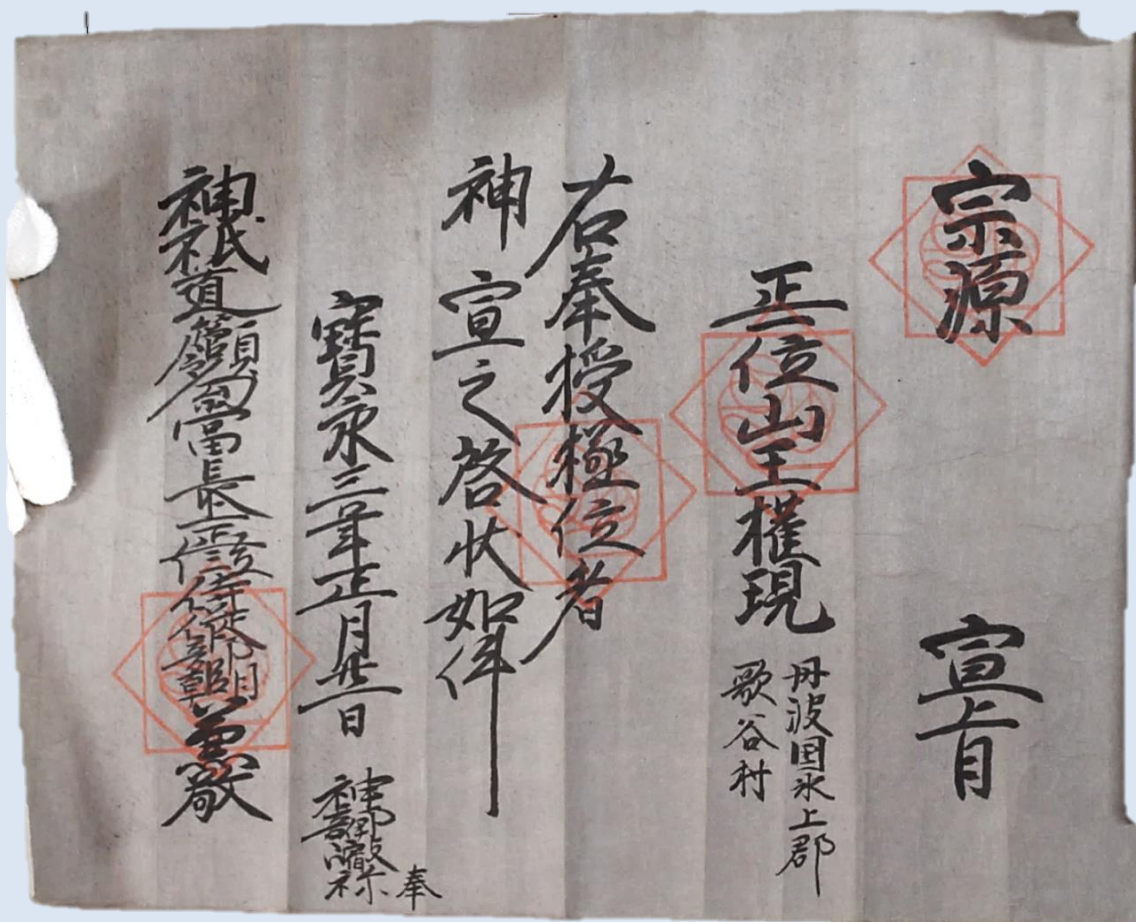 宗源 宣旨
正一位山王權現 丹波国氷上郡
歌谷村
右奉授極位者
神宣之啓状如件
寶永三年正月廿一日 神部 奉
神祇道管領勾當長上正三位侍従卜部朝臣兼敬